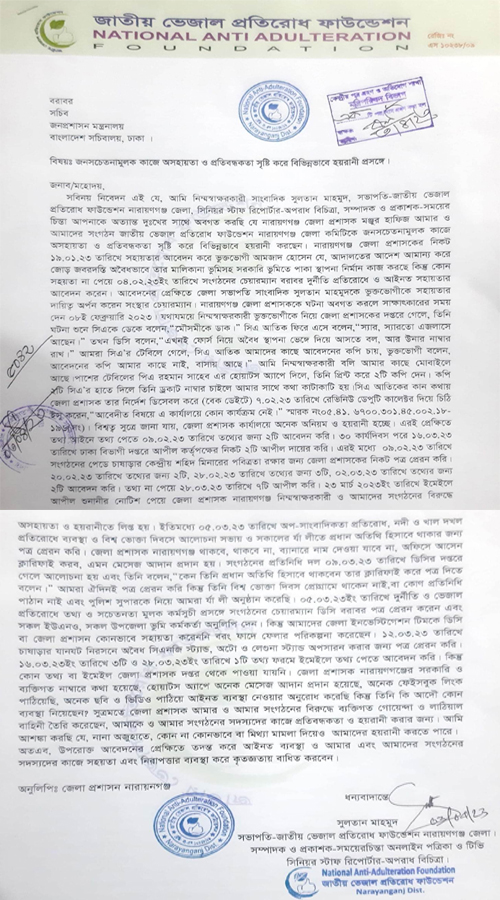 জাতীয় ভেজাল প্রতিরোধ ফাউন্ডেশন
NATIONAL ANTI ADULTERATION
FOUNDATION
রেজিঃ নং
এস ১০২৩৮/০৯
বরাবর
সচিব
জনপ্রশাসন মন্ত্রনালয়
বাংলাদেশ সচিবালয়, ঢাকা ।
বিষয়ঃ জনসচেতনামুলক কাজে অসহায়তা ও প্রতিবন্ধকতা সৃষ্টি করে বিভিন্নভাবে হয়রানী প্রসঙ্গে।
জনাব/মহোদয়,
সবিনয় নিবেদন এই যে, আমি নিম্মস্বাক্ষরকারী সাংবাদিক সুলতান মাহমুদ, সভাপতি-জাতীয় ভেজাল
প্রতিরোধ ফাউন্ডেশন নারায়ণগঞ্জ জেলা, সিনিয়র স্টাফ রিপোর্টার-অপরাধ বিচিত্রা, সম্পাদক ও প্রকাশক-সময়ের
চিন্তা আপনাকে অত্যান্ত দুঃখের সাথে অবগত করছি যে নারায়ণগঞ্জ জেলা প্রশাসক মঞ্জুর হাফিজ আমার ও
আমাদের সংগঠন জাতীয় ভেজাল প্রতিরোধ ফাউন্ডেশন নারায়ণগঞ্জ জেলা কমিটিকে জনসচেতনামুলক কাজে
অসহায়তা ও প্রতিবন্ধকতা সৃষ্টি করে বিভিন্নভাবে হয়রানী করছেন। নারায়ণগঞ্জ জেলা প্রশাসকের নিকট
১৯.০১.২৩ তারিখে সহায়তার আবেদন করে ভুক্তভোগী আমজাদ হোসেন যে, আদালতের আদেশ আমান্য করে
জোড় জবরদস্তি অবৈধভাবে তার মালিকানা ভুমিসহ সরকারি ভুমিতে পাকা স্থাপনা নির্মান কাজ করছে কিন্তু কোন
সহয়তা না পেয়ে ০৪.০২.২৩ইং তারিখে সংগঠনের চেয়ারম্যান বরাবর দুর্নীতি প্রতিরোধে ও আইনত সহায়তার
আবেদন করেন। আবেদনের প্রেক্ষিতে জেলা সভাপতি সাংবাদিক সুলতান মাহমুদকে ভুক্তভোগীকে সহায়তার
দায়িত্ব অর্পন করেন সংস্থার চেয়ারম্যান। নারায়ণগঞ্জ জেলা প্রশাসককে ঘটনা অবগত করলে সাক্ষাৎকারের সময়
দেন ০৮ই ফেব্রুয়ারি ২০২৩। যথাযময়ে নিম্মস্বাক্ষরকারী ভুক্তভোগীকে নিয়ে জেলা প্রশাসকের দপ্তরে গেলে, তিনি
ঘটনা শুনে সিএকে ডেকে বলেন,"মৌসমীকে ডাক।" সিএ আতিক ফিরে এসে বলেন,"স্যার, স্যারতো এজলাসে
আছেন।" তখন ডিসি বলেন,"এখনই ফোর্স নিয়ে অবৈধ স্থাপন ভেঙ্গে দিয়ে আসতে বল, আর উনার নাম্বার
রাখ।" আমরা সিএ'র টেবিলে গেলে, সিএ আতিক আমাদের কাছে আবেদনের কপি চায়, ভুক্তভোগী বলেন,
আবেদনের কপি আমার কাছে নাই, বাসায় আছে।" আমি নিম্মস্বাক্ষরকারী বলি আমার কাছে মোবাইলে
আছে।পাশের টেবিলের সিএ রহমান সাহেব এর হোয়াটস আ্যাপে দিলে, তিনি প্রিন্ট করে ২টি কপি দেন। কপি
২টি সিএ'র হাতে দিলে তিনি প্রকাট নাম্বার চাইলে আমার সাথে কথা কাটাকাটি হয়।সিএ আতিকের কান কথায়
জেলা প্রশাসক তার নির্দেশ ডিসেবল করে (বেক ডেইটে) ৭.০২.২৩ তারিখে রেভিনিউ ডেপুটি কালেক্টর দিয়ে চিঠি
ইসু করেন,"আবেদীত বিষয়ে এ কার্যালয়ে কোন কার্যক্রম নেই।" স্মারক নং০৫.৪১. ৬৭০০.৩০১.৪৫.০০২.১৮-
বিশ্বস্ত সুত্রে জানা যায়, জেলা প্রশাসক কার্যালয়ে অনেক অনিয়ম ও হয়রানী হচ্ছে। এরই প্রেক্ষিতে
তথ্য আইনে তথ্য পেতে ০৯.০২.২৩ তারিখে তথ্যের জন্য ২টি আবেদন করি। ৩০ কার্যদিবস পরে ১৬.০৩.২৩
তারিখে ঢাকা বিভাগী দপ্তরে আপীল কর্তৃপক্ষের নিকট ২টি আপীল দায়ের করি। এরই মধ্যে ০৯.০২.২৩ তারিখে
সংগঠনের পেডে চাষাড়ার কেন্দ্রীয় শহিদ মিনারের পবিত্রতা রক্ষার জন্য জেলা প্রশাসকের নিকট পত্র প্রেরন করি।
২০.০২.২৩ তারিখে তথ্যের জন্য ২টি, ২৮.০২.২৩ তারিখে তথ্যের জন্য ৩টি, ০২.০৩.২৩ তারিখে তথ্যের জন্য
২টি আবেদন করি। তথ্য না পেয়ে ২৮.০৩.২৩ তারিখে ৭টি আপীল করি। ২৩ মার্চ ২০২৩ইং তারিখে ইমেইলে
আপীল শুনানীর নোটিশ পেয়ে জেলা প্রশাসক নারায়ণগঞ্জ নিম্মস্বাক্ষরকারী ও আমাদের সংগঠনের বিরুদ্ধে
অসহায়তা ও হয়রানীতে লিপ্ত হয়। ইতিমধ্যে ০৫.০৩.২৩ তারিখে অপ-সাংবাদিকতা প্রতিরোধ, নদী ও খাল দখল
প্রতিরোধে ব্যবস্থা ও বিশ্ব ভোক্তা দিবসে আলোচনা সভায় ও সকালের র‍্যা লীতে প্রধান অতিথি হিসাবে থাকার জন্য
পত্র প্রেরন করি। জেলা প্রশাসক নারায়ণগঞ্জ থাকবে, থাকবে না, ব্যানারে নাম দেওয়া যাবে না, অফিসে আসেন
ক্লারিফাই করব, এমন মেসেজ আদান প্রদান হয়। সংগঠনের প্রতিনিধি দল ০৯.০৩.২৩ তারিখে ডিসির দপ্তরে
গেলে আলোচনা হয় এবং তিনি বলেন,"কেন তিনি প্রধান অতিথি হিসাবে থাকবেন তার ক্লারিফাই করে পত্র দিতে
বলেন।" আমরা ঐদিনই পত্র প্রেরন করি কিন্তু তিনি বিশ্ব ভোক্তা দিবস প্রোগ্রামে থাকেন নাই,বা কোন প্রতিনিধি
পাঠান নাই এবং পুলিশ সুপারকে নিয়ে আমরা র‍্যা লী অনুষ্ঠান করেছি। ০৫.০৩.২৩ইং তারিখে দুর্নীতি ও ভেজাল
প্রতিরোধে তথ্য ও সচেতনতা মুলক কর্মসুচী প্রসঙ্গে সংগঠনের চেয়ারম্যান ডিসি বরাবর পত্র প্রেরন করেন এবং
সকল ইউএনও, সকল উপজেলা ভুমি কর্মকর্তা অনুলিপি দেন। কিন্তু আমাদের জেলা ইনভেস্টিগেশন টিমকে ডিসি
বা জেলা প্রশাসন কোনভাবে সহায়তা করেননি বরং ফাদে ফেলার পরিকল্পনা করেছেন। ১২.০৩.২৩ তারিখে
চাষাড়ার যানযট নিরসনে অবৈধ সিএনজি স্ট্যান্ড, অটো ও লেগুনা স্ট্যান্ড অপসারন করার জন্য পত্র প্রেরন করি।
১৬.০৩.২৩ইং তারিখে ৩টি ও ২৮.০৩.২৩ইং তারিখে ১টি তথ্য ফরমে ইমেইলে তথ্য পেতে আবেদন করি। কিন্তু
কোন তথ্য বা ইমেইল জেলা প্রশাসক দপ্তর থেকে পাওয়া যায়নি। জেলা প্রশাসক নারায়ণগঞ্জের সরকারি ও
ব্যক্তিগত নাম্বারে কথা হয়েছে, হোয়াটস আ্যাপে অনেক মেসেজ আদান প্রদান হয়েছে, অনেক ফেইসবুক লিংক
পাঠিয়েছি, অনেক ছবি ও ভিডিও পাঠিয়ে আইনত ব্যবস্থা নেওয়ার অনুরোধ করেছি কিন্তু তিনি কি আদৌ কোন
ব্যবস্থা নিয়েছেন? সুত্রমতে জেলা প্রশাসক আমার ও আমার সংগঠনের বিরুদ্ধে ব্যক্তিগত গোয়েন্দা ও লাঠিয়াল
বাহিনী তৈরি করেছেন, আমাকে ও আমার সংগঠনের সদস্যাদের কাজে প্রতিবন্ধকতা ও হয়রানী করার জন্য। আমি
আশঙ্কা করছি যে, নানা অজুহাতে, কোন না কোনভাবে বা মিথ্যা মামলা দিয়েও আমাদের হয়রানী করতে পারে।
অতএব, উপরোক্ত আবেদনের প্রেক্ষিতে তদন্ত করে আইনত ব্যবস্থা ও আমার এবং আমাদের সংগঠনের
সদস্যদের কাজে সহায়তা এবং নিরাপত্তার ব্যবস্থা করে কৃতজ্ঞতায় বাধিত করবেন।
অনুলিপিঃ জেলা প্রশাসন নারায়নগঞ্জ
ধন্যবাদান্তে
সুলতান মাহমুদ
সভাপতি-জাতীয় ভেজাল প্রতিরোধ ফাউন্ডেশন নারায়ণগঞ্জ জেলা।
সম্পাদক ও প্রকাশক-সময়েরচিন্তা অনলাইন পত্রিকা ও টিভি
সিনিয়র স্টাফ রিপোর্টার-অপরাধ বিচিত্রা।
National Anti-Adulteration Foundation
জাতীয় ভেজাল প্রতিরোধ ফাউন্ডেশন
Narayanganj Dist.